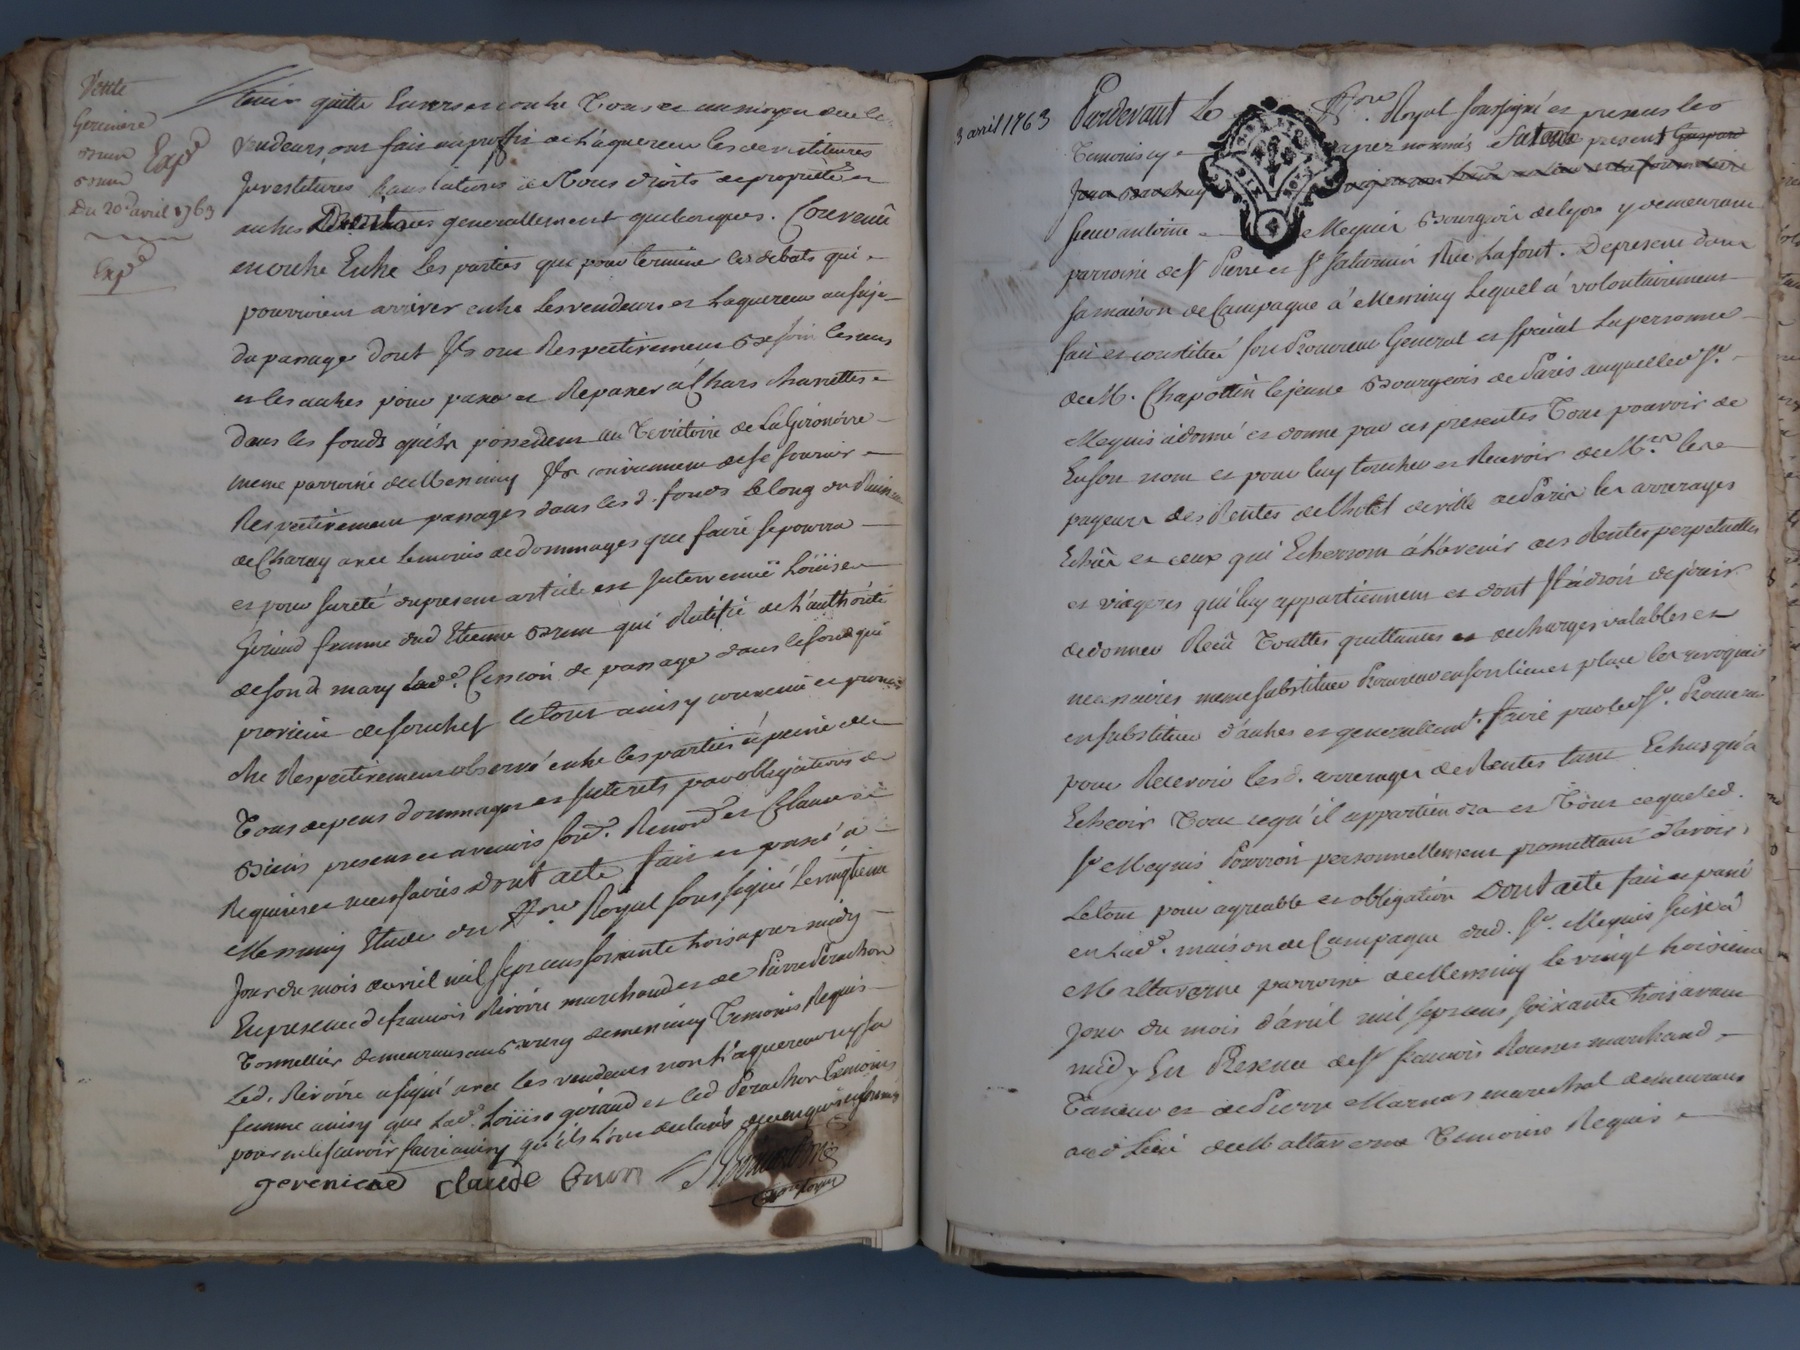 Vente
Gerenicre
Brun
Brun
Expé
Du 20e avril 1763
Expé
tenir quitte Envers et contre Tous et au moyen de ce les
Vendeurs ont fait au proffit de l'aquereur les devestitures
Jnvestitures translations de Tous droits de propriété et
autres Droits generallement quelconques. Convenû
en outre Entre Les parties que pour terminer les debats qui
pourroient arriver entre Les vendeurs et L'aquereur au suje
du passage dont Jls ont Respectivement Besoin les uns
et les autres pour passer et Repasser à Chars charrettes
dans les fonds qu'ils possedent au Territoire de La Gironière
meme parroisse de Messimy Jls conviennent de se fournir
Respectivement passages dans les d. fonds le long du Ruisseau
de Charay avec le moins de dommages que faire se pourra
et pour sureté du present article est Jntervenuë Loüise
Giraud femme dud Etienne Brun qui Ratifie de L'authorité
de son d. mary Lad.e Cession de passage dans le fond qui
provient de son chef le tout ainsy convenu et promis
être Respectivement observé entre les parties à peine de
Tous depens dommages et Jnterets par obligations de
Biens presens et avenirs soud. Renond. et Clauses
Requises et necessaires Dont acte fait et passé à
Messimy Etude du N.re Royal soussigné Le vingtieme
Jour du mois d'avril mil sept cens soixante trois apres midy
En presence de francois Rivoire marchand et de Pierre Perachon
Tonnellier demeurans au Bourg de messimy Temoins Requis
Led. Rivoire a signé avec les vendeurs non L'aquereur ny sa
femme ainsy que Lad. Loüise giraud et led Perachon Temoins
pour ne le scavoir faire ainsy qu'ils L'ont declaré de ce enquis et sommés
gerenicre claude Brun
3 avril 1763
Pardevant Le N.re Royal soussigné et presens les
Temoins cy apres nommés
sieur antoine Mequis Bourgeois de lyon y demeurant
parroisse de St Pierre et St Saturnin Rue Lafont. De present dans
sa maison de Campagne à Messimy Lequel a volontairement
fait et constitué son Procureur General et special La personne
de M. Chapottin le jeune Bourgeois de Paris auquel led Sr.
Mequis a donné et donne par ces presentes Tout pouvoir de
En son nom et pour luy toucher et Recevoir de M.rs les
payeurs des Rentes de L'hotel de ville de Paris les arrerages
Echûs et ceux qui Echerront à L'avenir des Rentes perpetuelles
et viageres qui luy appartiennent et dont Jl a droit de jouir
de donner Reçû Touttes quittances et decharges valables et
necessaires meme substituer Procureur en son lieu et place les revoquer
en substituer d'autres et generallemt. faire par led Sr. Procureur
pour Recevoir les d. arrerages de Rentes tant Echus qu'à
Echeoir Tout ce qu'il appartiendra et Tout ce que led.
Sr Mequis Pourroit personnellement promettant D'avoir
Le tout pour agreable et obligation Dont acte fait et passé
en Lad. maison de Campagne dud. Sr. Mequis Sise à
Maltaverne parroisse de Messimy le vingt troisieme
Jour du mois d'avril mil sept cens soixante trois avant
midy En Presence de Sr francois Rousset marchand
Taneur et de Pierre Marnas marechal demeurans
aud Lieu de Maltaverne Temoins Requis